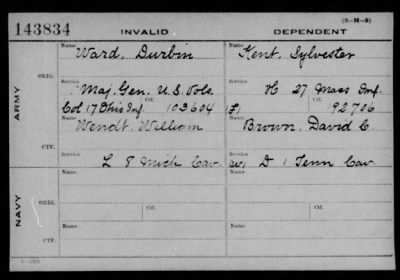 143834 INVALID (3-H-3) DEPENDENT
ARMY
ORIG.
Name Ward, Durbin
Name Kent, Sylvester
Service Maj. Gen. U.S. Vols.
Service H 27 Mass Inf.
Col 17 Ohio Inf. Ctf. 103604
Ctf. 192706
CTF.
Name Wendt, William
Name Brown, David C
Service L 8 Mich Cav.
Service D 1 Tenn Cav.
NAVY
ORIG.
Name
Name
Ctf.
Ctf.
CTF.
Name
Name